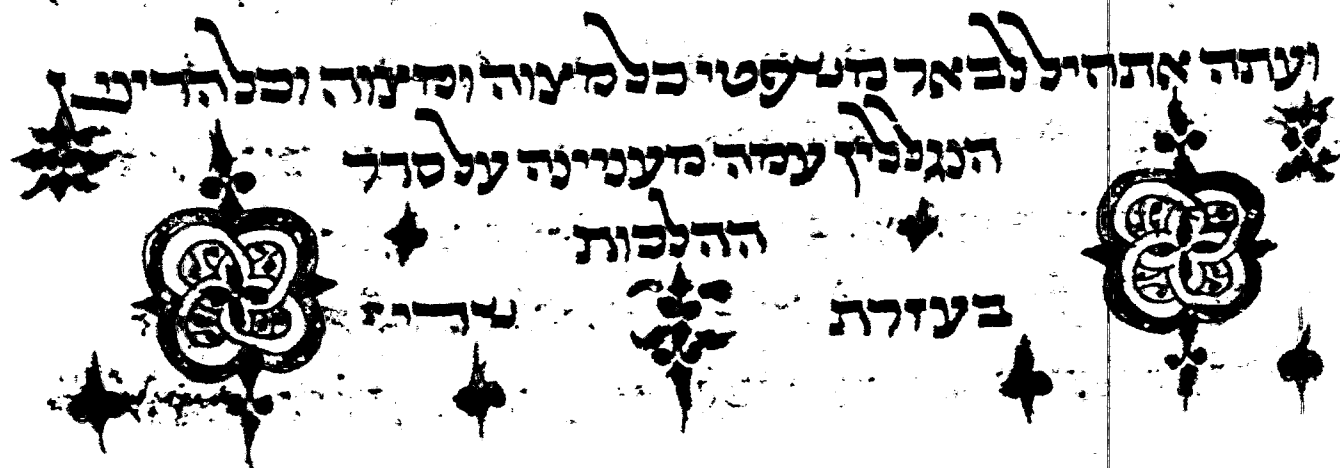 ועתה אתחיל לבאר משפטי כל מצוה ומצוה וכל הדינין
הנגללין עמה מעניינה על סדר
ההלכות
בעזרת שדי